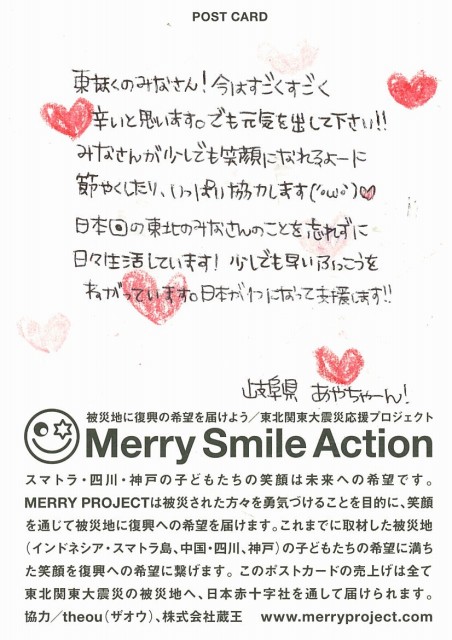 POST CARD
東北のみなさん!今はすごくすごく
辛いと思います。でも元気を出して下さい!!
みなさんが少しでも笑顔になれるよーに
節やくしたり、いっぱい協力します('ω')♥
日本中の東北のみなさんのことを忘れずに
日々生活しています!少しでも早いふっこうを
ねがっています。日本が1つになって支援します!!
岐阜県 あやちゃーん!
被災地に復興の希望を届けよう/東北関東大震災応援プロジェクト
Merry Smile Action
スマトラ・四川・神戸の子どもたちの笑顔は未来への希望です。
MERRY PROJECTは被災された方々を勇気づけることを目的に、笑顔
を通じて被災地に復興への希望を届けます。これまでに取材した被災地
(インドネシア・スマトラ島、中国・四川、神戸)の子どもたちの希望に満ち
た笑顔を復興への希望に繋げます。このポストカードの売上げは全て
東北関東大震災の被災地へ、日本赤十字社を通して届けられます。
協力/theou(ザオウ)、株式会社蔵王 www.merryproject.com